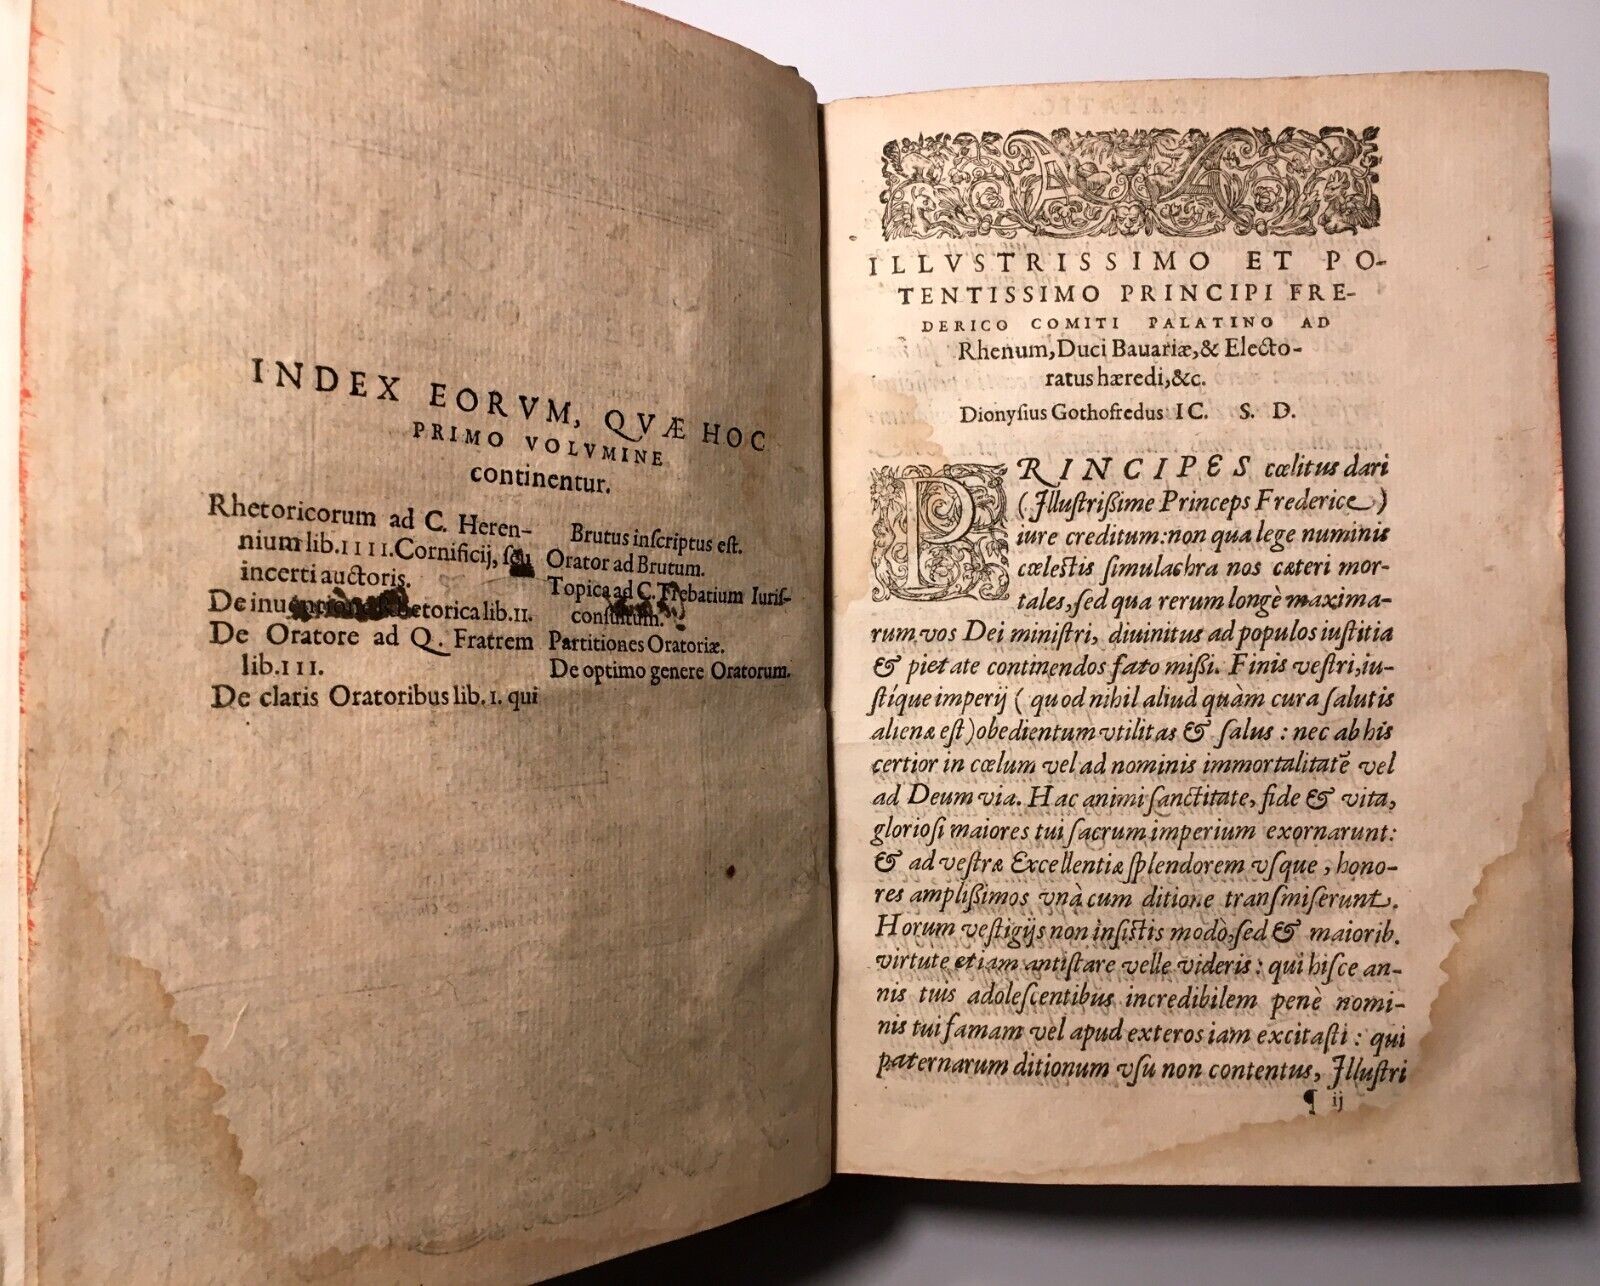 INDEX EORVM, QVÆ HOC
PRIMO VOLVMINE
continentur.
Rhetoricorum ad C. Heren-
nium lib. IIII. Cornificij, ſeu
incerti auctoris.
De inuentione Rhetorica lib. II.
De Oratore ad Q. Fratrem
lib. III.
De claris Oratoribus lib. I. qui
Brutus inſcriptus eſt.
Orator ad Brutum.
Topica ad C. Trebatium Iuriſ-
conſultum.
Partitiones Oratoriæ.
De optimo genere Oratorum.
ILLVSTRISSIMO ET PO-
TENTISSIMO PRINCIPI FRE-
DERICO COMITI PALATINO AD
Rhenum, Duci Bauariæ, & Electo-
ratus hæredi, &c.
Dionyſius Gothofredus IC. S. D.
PRINCIPES cœlitus dari
(Illuſtrißime Princeps Frederice)
iure creditum: non qua lege numinis
cœleſtis ſimulachra nos cæteri mor-
tales, ſed qua rerum longè maxima-
rum, vos Dei miniſtri, diuinitus ad populos iuſtitia
& pietate continendos fato miſſi. Finis veſtri, iu-
ſtíque imperij (quod nihil aliud quàm cura ſalutis
alienæ eſt) obedientum vtilitas & ſalus: nec ab his
certior in cœlum vel ad nominis immortalitatẽ vel
ad Deum via. Hac animi ſanctitate, fide & vita,
glorioſi maiores tui ſacrum imperium exornarunt:
& ad veſtræ Excellentiæ ſplendorem vſque, hono-
res amplißimos vnà cum ditione tranſmiſerunt.
Horum veſtigijs non inſiſtis modò, ſed & maiorib.
virtute etiam antiſtare velle videris: qui hiſce an-
nis tuis adoleſcentibus incredibilem penè nomi-
nis tui famam vel apud exteros iam excitaſti: qui
paternarum ditionum vſu non contentus, Illuſtri
¶ ij